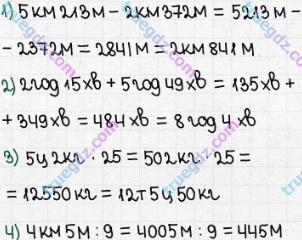 1) 5км 213м - 2км 372м = 5213м -
- 2372м = 2841м = 2км 841м
2) 2год 15хв + 5год 49хв = 135хв +
+ 349хв = 484хв = 8год 4хв
3) 5ц 2кг · 25 = 502кг · 25 =
= 12550кг = 12т 5ц 50кг
4) 4км 5м : 9 = 4005м : 9 = 445м